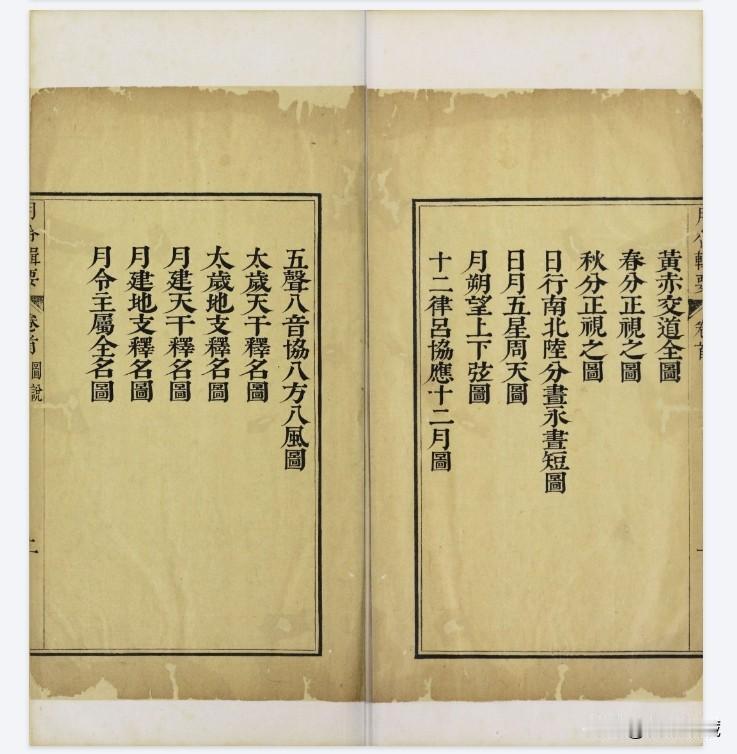 月令輯要 卷首
黃赤交道全圖
春分正視之圖
秋分正視之圖
日行南北陸分晝永晝短圖
日月五星周天圖
月朔望上下弦圖
十二律呂協應十二月圖
五聲八音協八方八風圖
太歲天干釋名圖
太歲地支釋名圖
月建天干釋名圖
月建地支釋名圖
月令主屬全名圖
月令輯要 卷首 圖說 二